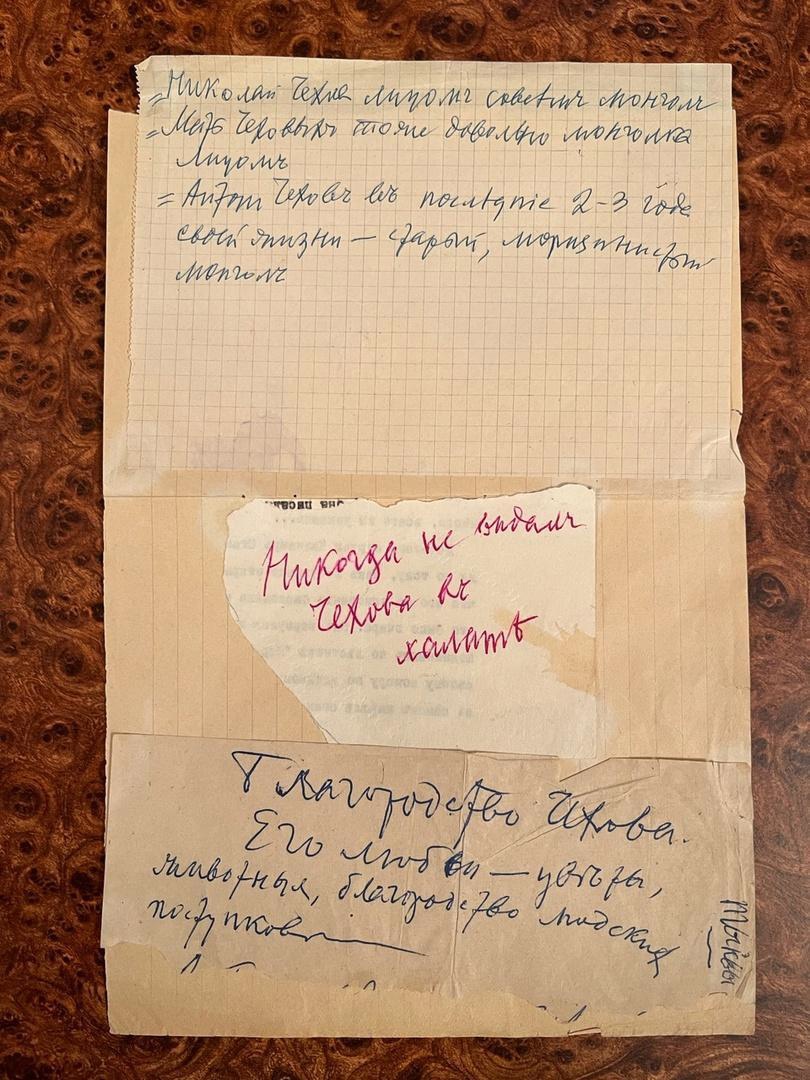 = Николай Чехов лицомъ совсемъ монголъ
= Мать Чеховыхъ тоже довольно монголка
лицомъ
= Антон Чеховъ въ последніе 2-3 года
своей жизни — старый, морщинистый
монголъ
Никогда не видалъ
Чехова въ
халатѣ
Благородство Чехова.
Его любви — цвѣты,
животныя, благородство людских
поступковъ